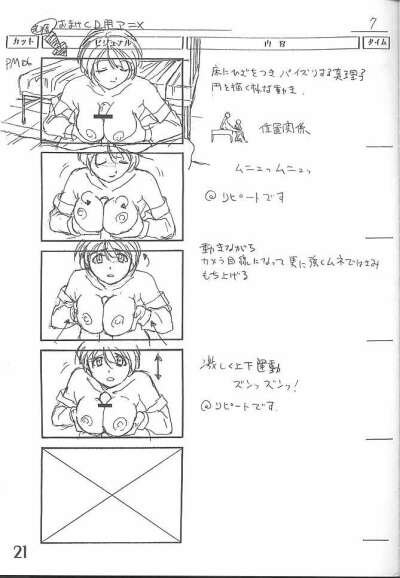 おまけCD用アニメ 7
カット ビジュアル 内容 タイム
PM06
床にひざをつき パイズリする真理子
円を描く様な動き.
位置関係
ムニュっムニュっ
@リピートです
動きながら
カメラ目線になって 更に強くムネではさみ
もち上げる
激しく上下運動
ズンっズンっ!
@リピートです.
21